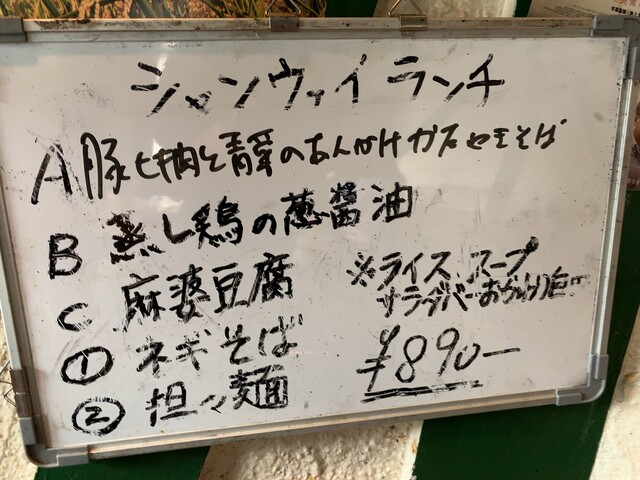 シャンウェイランチ
A 豚ヒヤ肉と青菜のあんかけカタヤキそば
B 蒸し鶏の葱醤油
C 麻婆豆腐
① ネギそば
② 担々麺
※ライス スープ
サラダバーおかわり自由
¥890-